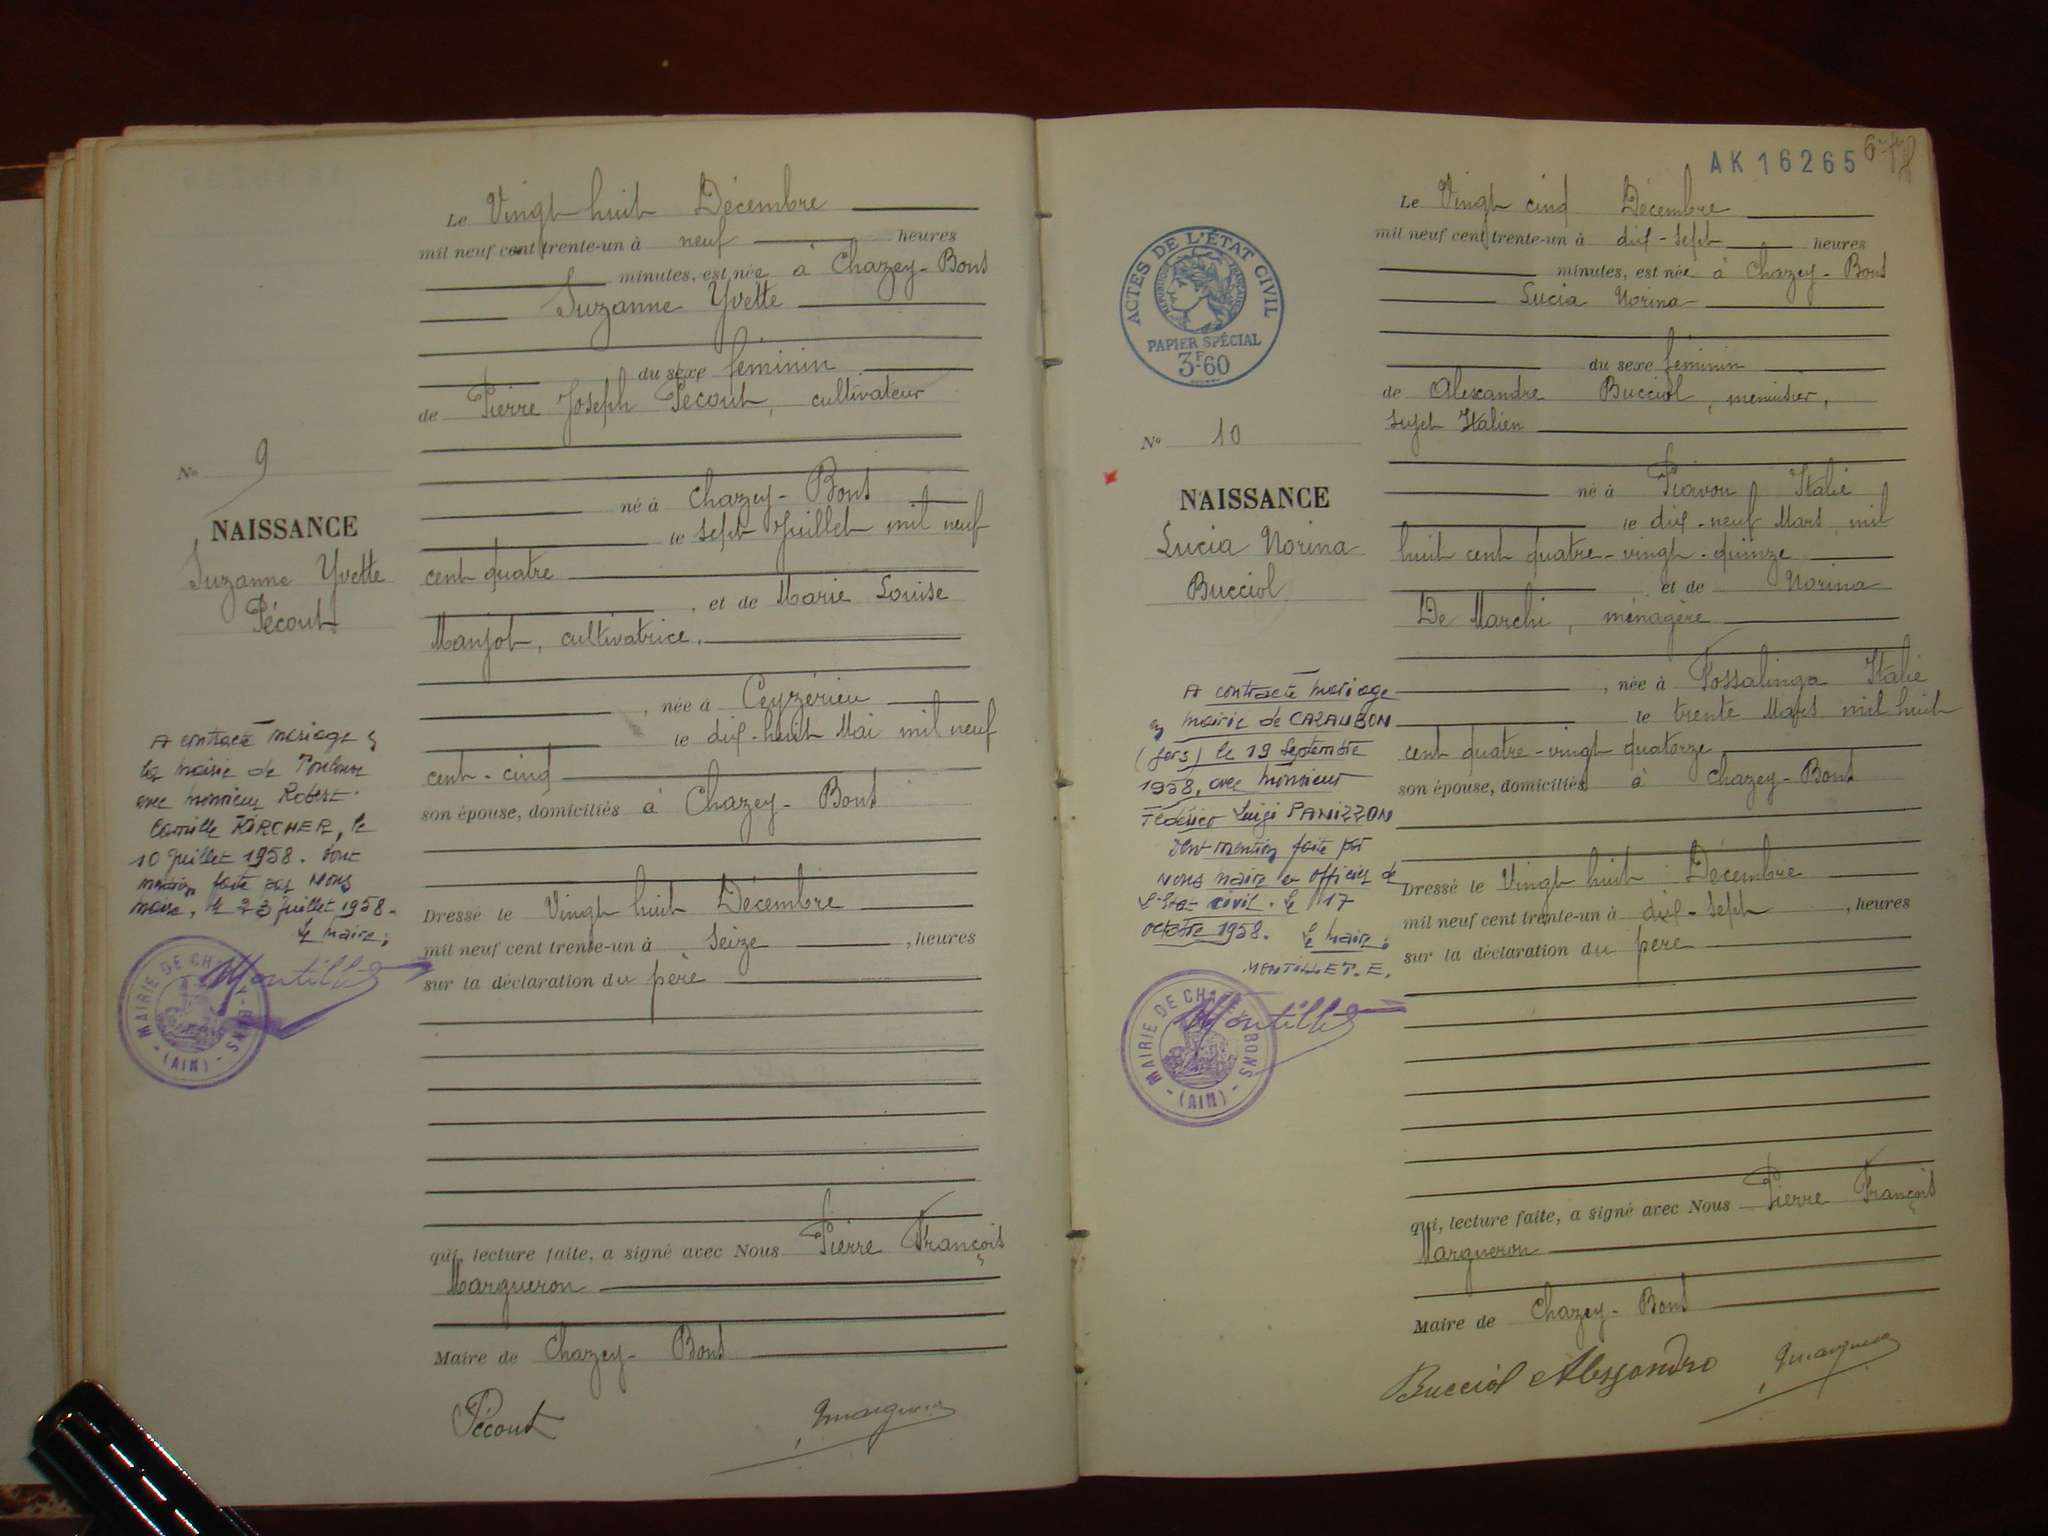 Le Vingt huit Décembre
mil neuf cent trente-un à neuf heures
minutes, est née à Chazey-Bons
Suzanne Yvette
du sexe féminin
de Pierre Joseph Pécout, cultivateur
N° 9
né à Chazey-Bons
NAISSANCE
le sept Juillet mil neuf
Suzanne Yvette
cent quatre
Pécout
, et de Marie Louise
Manjot, cultivatrice,
, née à Ceyzérieu
le dix-huit Mai mil neuf
cent-cinq
son épouse, domiciliés à Chazey-Bons
A contracté mariage à
la mairie de Toulouse
avec monsieur Robert
Camille KIRCHER, le
10 Juillet 1958. Dont
mention faite par Nous
maire, le 23 juillet 1958.
Le maire :
Montillet
MAIRIE DE CHAZEY-BONS
(AIN)
Dressé le Vingt huit Décembre
mil neuf cent trente-un à seize, heures
sur la déclaration du père
qui, lecture faite, a signé avec Nous Pierre François
Margueron
Maire de Chazey-Bons
Pécout
AK 16265
Le Vingt cinq Décembre
mil neuf cent trente-un à dix-sept heures
minutes, est née à Chazey-Bons
Lucia Norina
ACTES DE L'ÉTAT CIVIL
RÉPUBLIQUE FRANÇAISE
PAPIER SPÉCIAL
3F60
du sexe féminin
de Alexandre Bucciol, menuisier,
sujet Italien
N° 10
né à Piavon Italie
NAISSANCE
le dix-neuf Mars mil
Lucia Norina
huit cent quatre-vingt-quinze
Bucciol
et de Norina
De Marchi, ménagère
, née à Fossalinga Italie
le trente Mars mil huit
cent quatre-vingt quatorze
son épouse, domiciliés à Chazey-Bons
A contracté mariage
à mairie de CAZAUBON
(Gers) le 19 Septembre
1958, avec monsieur
Fédérico Luigi PANIZZON
Dont mention faite par
nous maire en officier de
l'Etat civil. le 17
octobre 1958. Le maire :
MONTILLET. E.
Montillet
MAIRIE DE CHAZEY-BONS
(AIN)
Dressé le Vingt huit Décembre
mil neuf cent trente-un à dix-sept, heures
sur la déclaration du père
qui, lecture faite, a signé avec Nous Pierre François
Margueron
Maire de Chazey-Bons
Bucciol Alessandro